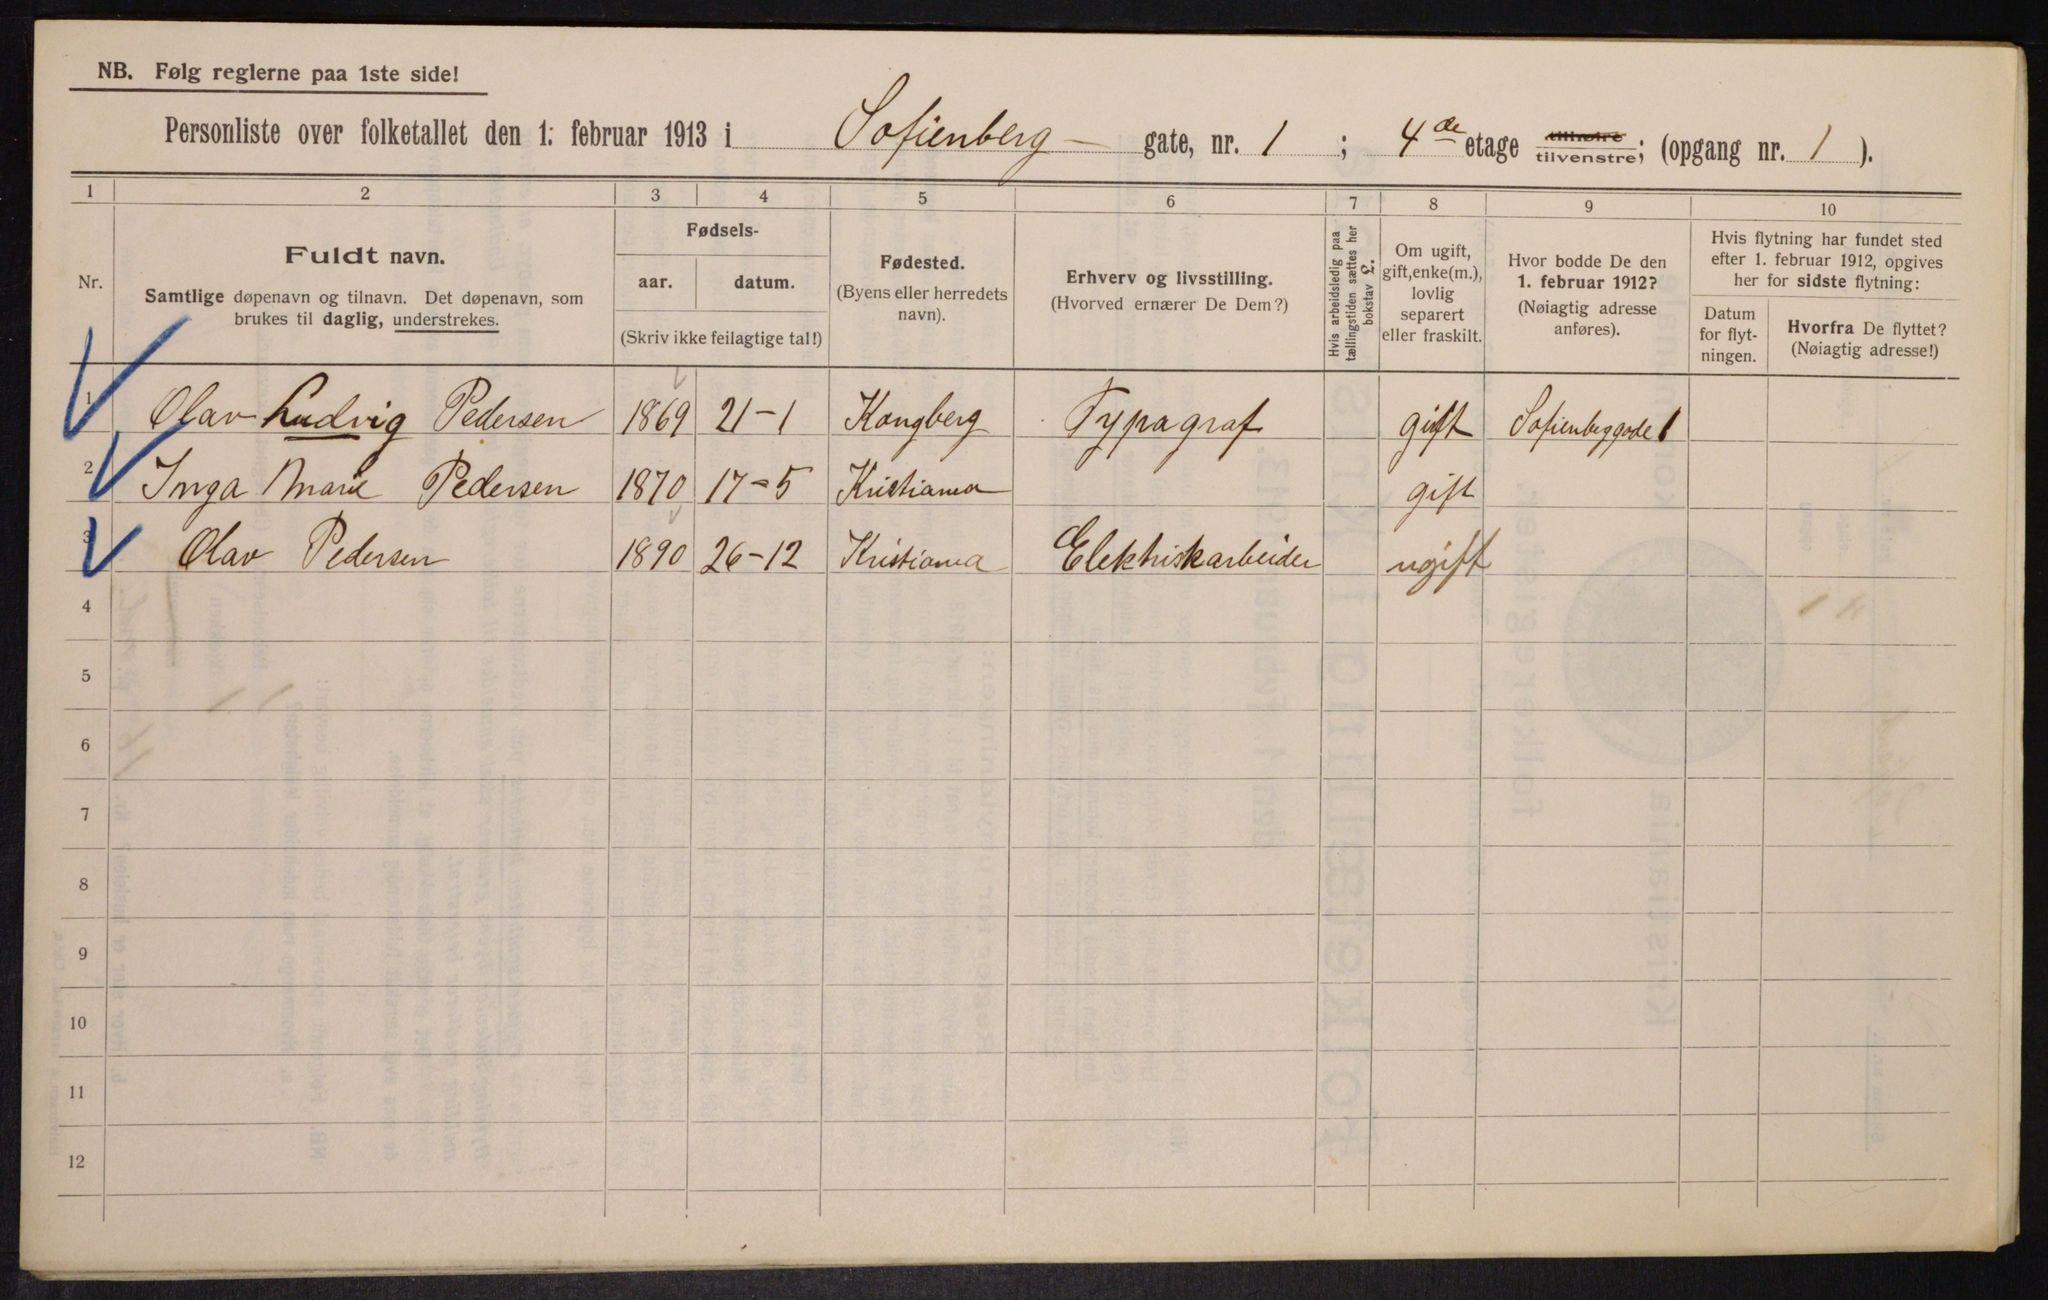 NB. Følg reglerne paa 1ste side!
Personliste over folketallet den 1. februar 1913 i Sofienberg gate, nr. 1 ; 4de etage tilhøire tilvenstre; (opgang nr. 1 ).
1 2 3 4 5 6 7 8 9 10
Nr.
Fuldt navn.
Samtlige døpenavn og tilnavn. Det døpenavn, som
brukes til daglig, understrekes.
Fødsels-
aar. datum.
(Skriv ikke feilagtige tal!)
Fødested.
(Byens eller herredets
navn).
Erhverv og livsstilling.
(Hvorved ernærer De Dem?)
Hvis arbeidsledig paa
tællingstiden sættes her
bokstav L.
Om ugift,
gift, enke(m.),
lovlig
separert
eller fraskilt.
Hvor bodde De den
1. februar 1912?
(Nøiagtig adresse
anføres).
Hvis flytning har fundet sted
efter 1. februar 1912, opgives
her for sidste flytning:
Datum
for flyt-
ningen.
Hvorfra De flyttet?
(Nøiagtig adresse!)
1 Olav Ludvig Pedersen 1869 21-1 Kongberg Typograf gift Sofienberggade 1
2 Inga Marie Pedersen 1870 17-5 Kristiania gift
3 Olav Pedersen 1890 26-12 Kristiania Elektriskarbeider ugift
4
5
6
7
8
9
10
11
12